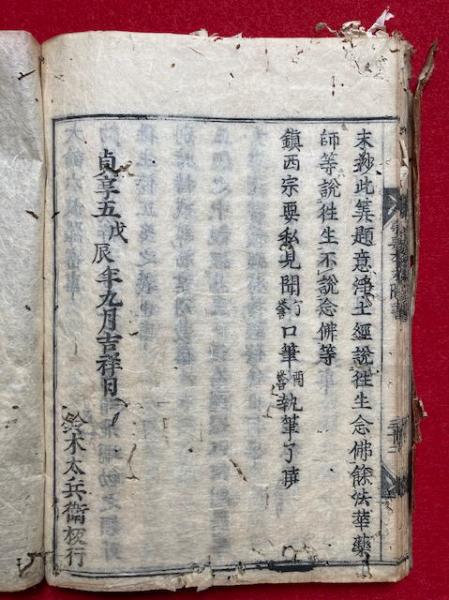 末抄此筭題意淨土經說徃生念佛餘法華藥
師等說徃生不說念佛等
鎮西宗要私見聞了誉口筆酉誉執筆了
貞享五戊辰年九月吉祥日
鈴木太兵衛板行